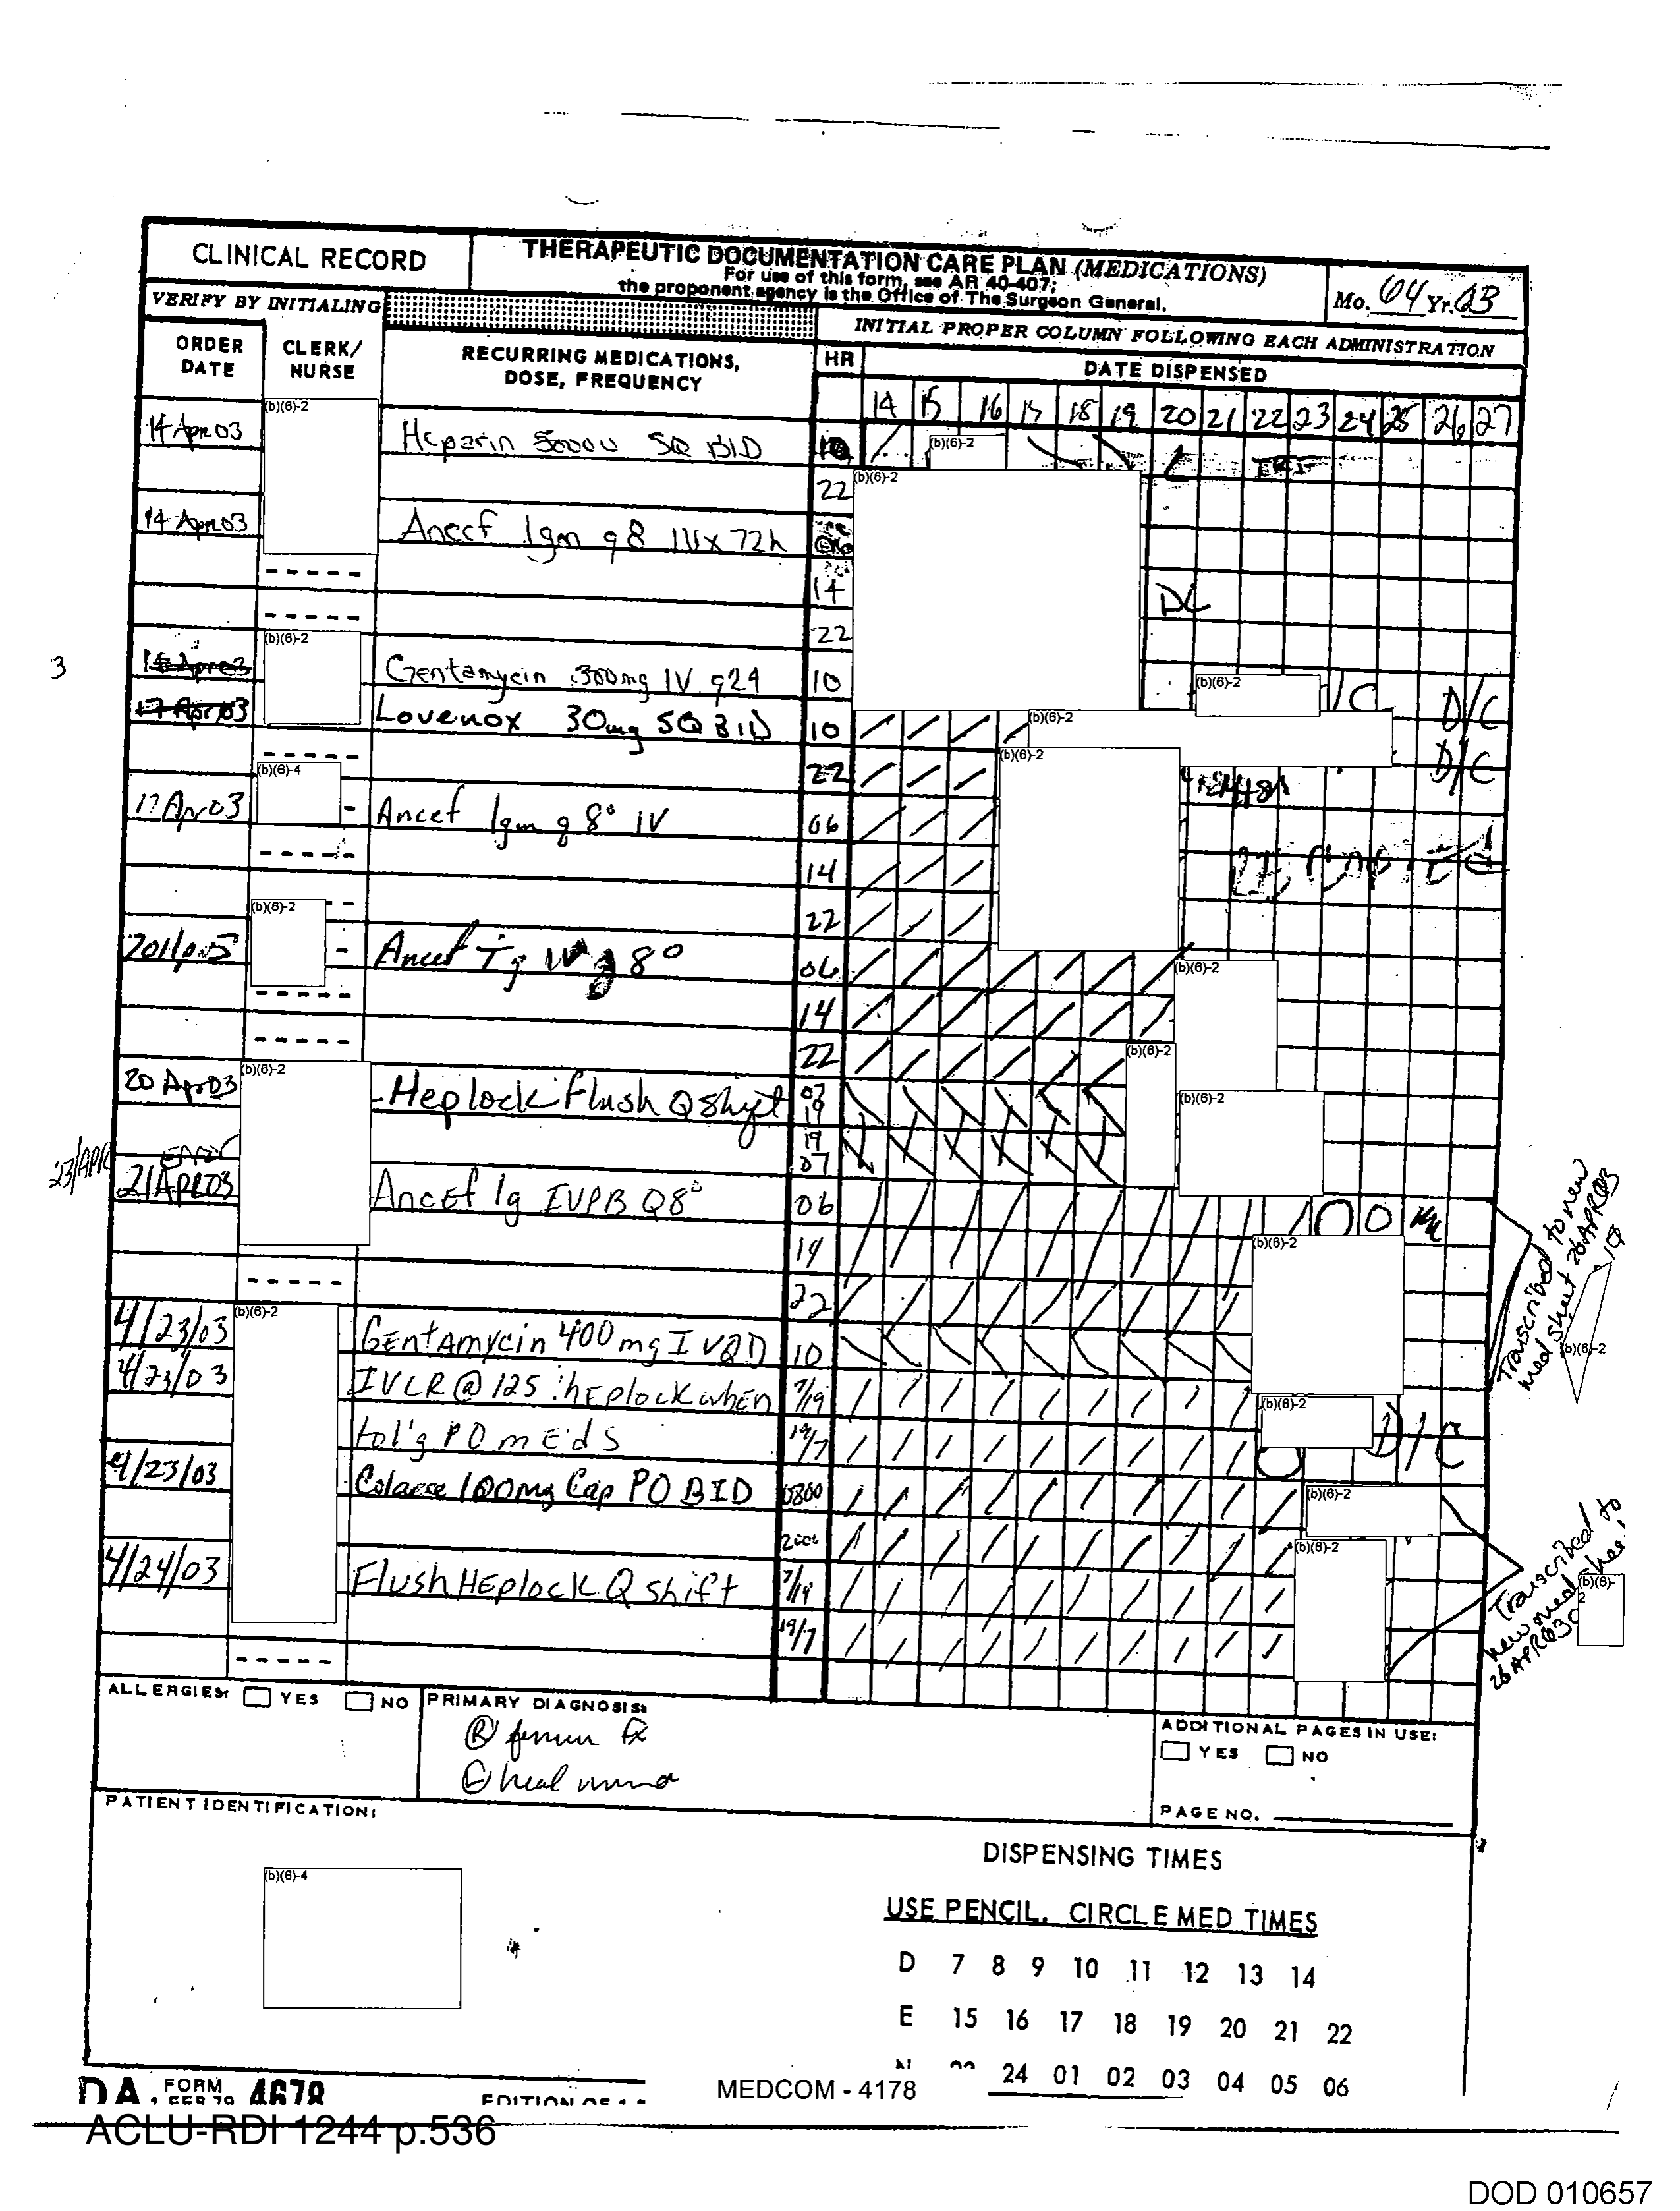 CLINICAL RECORD
THERAPEUTIC DOCUMENTATION CARE PLAN (MEDICATIONS)
For use of this form, see AR 40-407;
the proponent agency is the Office of The Surgeon General.
Mo. 04 Yr. 03
VERIFY BY INITIALING
INITIAL PROPER COLUMN FOLLOWING EACH ADMINISTRATION
ORDER DATE
CLERK/ NURSE
RECURRING MEDICATIONS, DOSE, FREQUENCY
HR
DATE DISPENSED
14 15 16 17 18 19 20 21 22 23 24 25 26 27
14 Apr 03 (b)(6)-2 Heparin 5000U SQ BID 10 (b)(6)-2
22 (b)(6)-2
14 Apr 03 Ancef 1gm q8 IV x 72h
14 DC
22
3
(b)(6)-2 Gentamycin 300mg IV q24 10 (b)(6)-2 D/C
17 Apr 03 Lovenox 30mg SQ BID 10 (b)(6)-2
22 (b)(6)-2 D/C
17 Apr 03 (b)(6)-4 Ancef 1gm q 8° IV 06
14
22
(b)(6)-2 Ancef Tg IV q 8° 06 (b)(6)-2
14
22 (b)(6)-2
20 Apr 03 (b)(6)-2 Heplock Flush Q Shift 07 19 (b)(6)-2
19 07
error
23/APR
21 APR 03 Ancef 1g IVPB Q8° 06
14 (b)(6)-2
22
4/23/03 (b)(6)-2 Gentamycin 400mg IV QD 10
4/23/03 IVLR @ 125 : heplock when 7/19
tol'g PO mEds 19/7 (b)(6)-2 D/C
4/23/03 Colace 100mg Cap PO BID 0800 (b)(6)-2
2000 (b)(6)-2
4/24/03 Flush HEplock Q shift 7/19
19/7
Transcribed to new
med sheet 26APR03
(b)(6)-2
Transcribed to
new med
26APR03
(b)(6)-2
ALLERGIES: YES NO
PRIMARY DIAGNOSIS:
(R) femur fx
ADDITIONAL PAGES IN USE:
YES NO
PAGE NO.
PATIENT IDENTIFICATION:
(b)(6)-4
DISPENSING TIMES
USE PENCIL. CIRCLE MED TIMES
D 7 8 9 10 11 12 13 14
E 15 16 17 18 19 20 21 22
24 01 02 03 04 05 06
DA FORM 4678
MEDCOM - 4178
ACLU-RDI 1244 p.536
DOD 010657